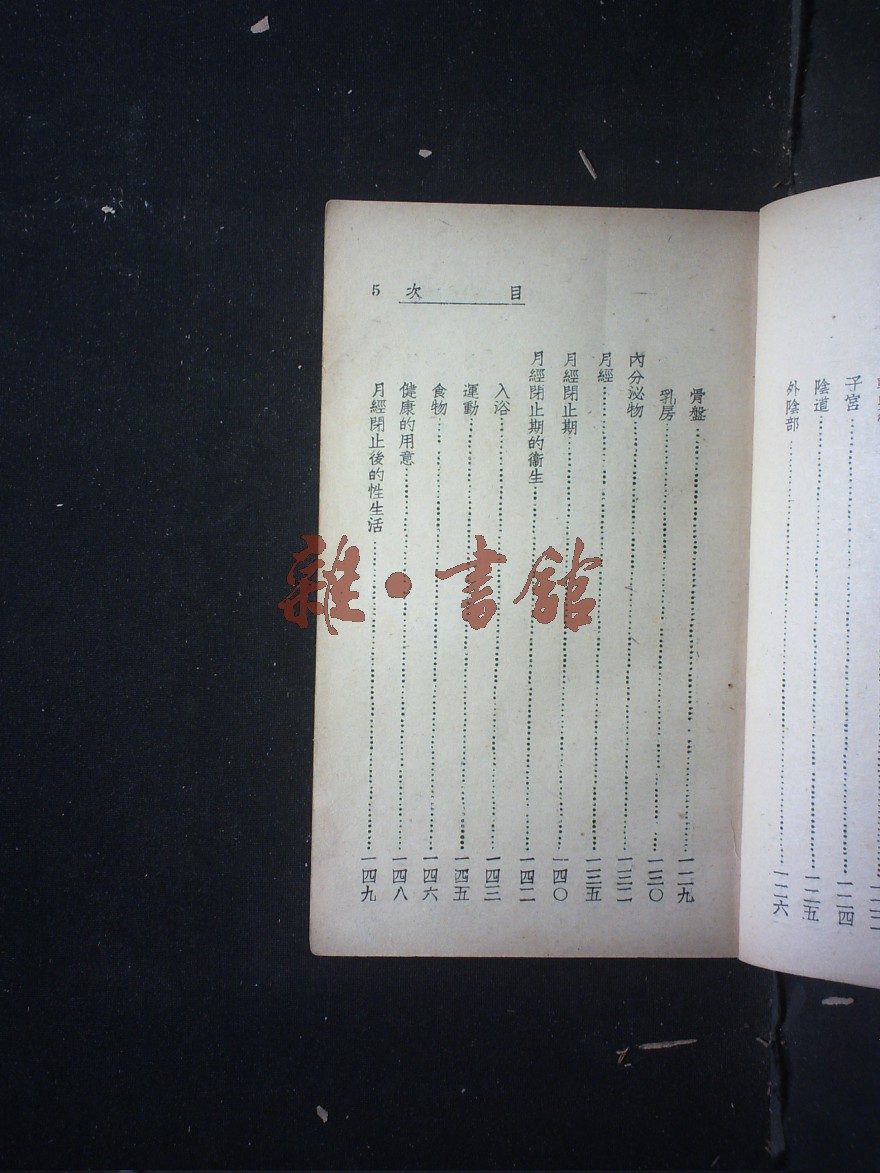 子宮⋯⋯一二四
陰道⋯⋯一二五
外陰部⋯⋯一二六
目次 5
骨盤⋯⋯一二九
乳房⋯⋯一三〇
內分泌物⋯⋯一三二
月經⋯⋯一三五
月經閉止期⋯⋯一四〇
月經閉止期的衞生⋯⋯一四二
入浴⋯⋯一四三
運動⋯⋯一四五
食物⋯⋯一四六
健康的用意⋯⋯一四八
月經閉止後的性生活⋯⋯一四九
雜·書館